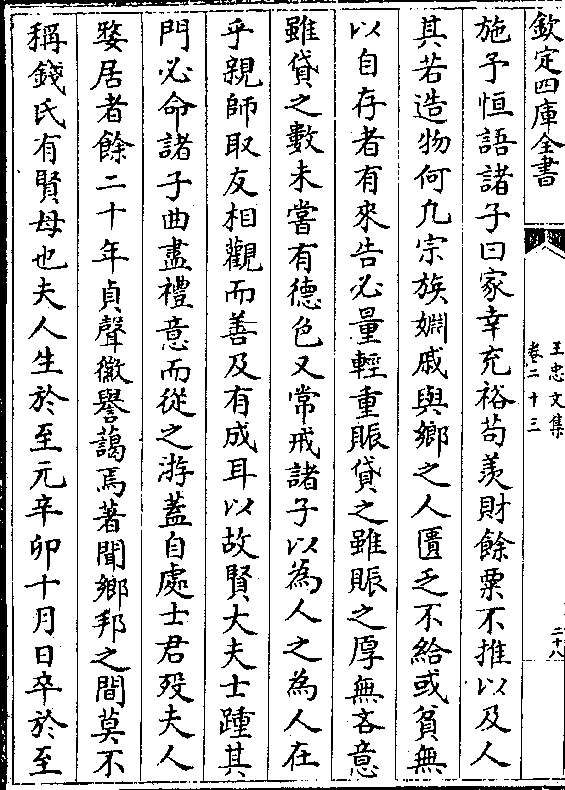 欽定四庫全書
王忠文集
卷二十三
二十八
施予恒語諸子曰家幸充裕苟羡財餘粟不推以及人
其若造物何凡宗族婣戚與鄉之人匱乏不給或貧無
以自存者有來告必量輕重賑貸之雖賑之厚無吝意
雖貸之數未嘗有德色又常戒諸子以為人之為人在
乎親師取友相觀而善及有成耳以故賢大夫士踵其
門必命諸子曲盡禮意而從之游蓋自處士君歿夫人
嫠居者餘二十年貞聲徽譽藹焉著聞鄉邦之間莫不
稱錢氏有賢母也夫人生於至元辛卯十月日卒於至